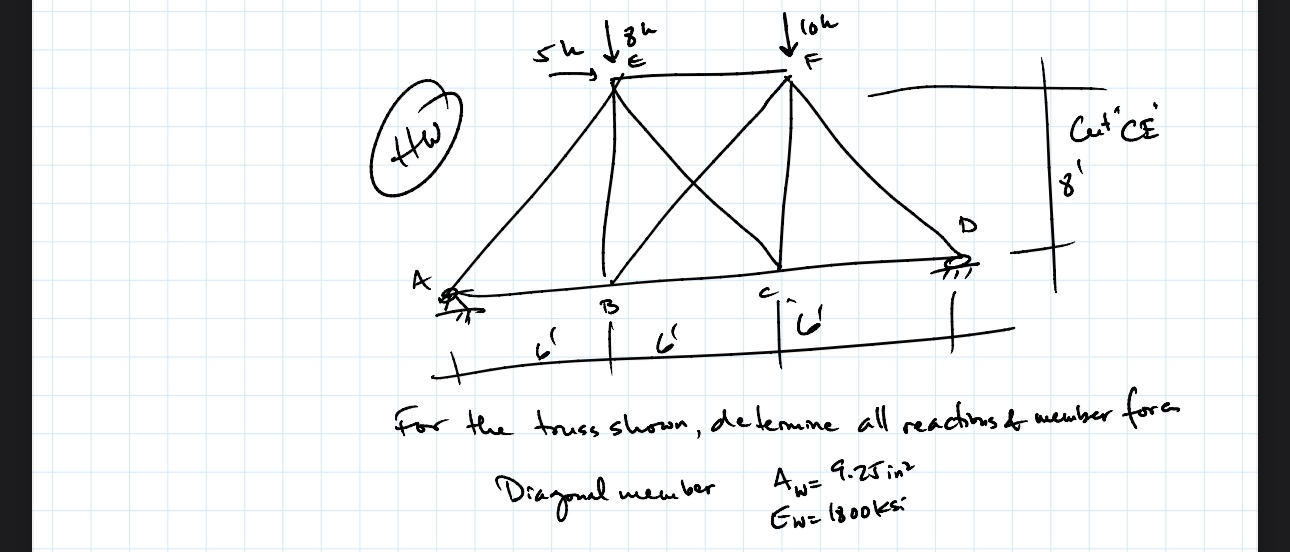 5k
8k
E
10k
F
HW
Cut "CE"
8'
A
B
C
D
6'
6'
6'
For the truss shown, determine all reactions & member forces
Diagonal member
Aw= 9.25in²
Ew= 1800ksi